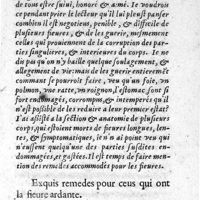 de tous estre suiui, honoré & amé. Ie voudrois
ce pendant prier le lecteur qu'il luy pleust panser
combien il est negotieus, penible, & difficile de
plusieurs fieures, & de les guerir, mesmement
celles qui prouiennent de la corruption des par-
ties singulieres, & interieures du corps. Ie ne
dis pas qu'on n'y baille quelque soulagement, &
allegement de vie: mais de les guerir entierement
comment se pourroit faire, veu qu'un foïe, vn
polmon, vne ratte, vn roignon, l'estomac sont si
fort endommagés, corrompus, & intemperés qu'il
n'est possible de les reduire a leur premier estat?
I'ai assisté a la section & anatomie de plusieurs
corps, qui estoient mors de fieures longues, len-
tes, & symptomatiques, ou ie n'ai point veu qui
n'eussent quelqu'une des parties susdites en-
dommagées, & gastées. Il est temps de faire men-
tion des remedes accommodés pour les fieures.
Exquis remedes pour ceus qui ont
la fieure ardante.